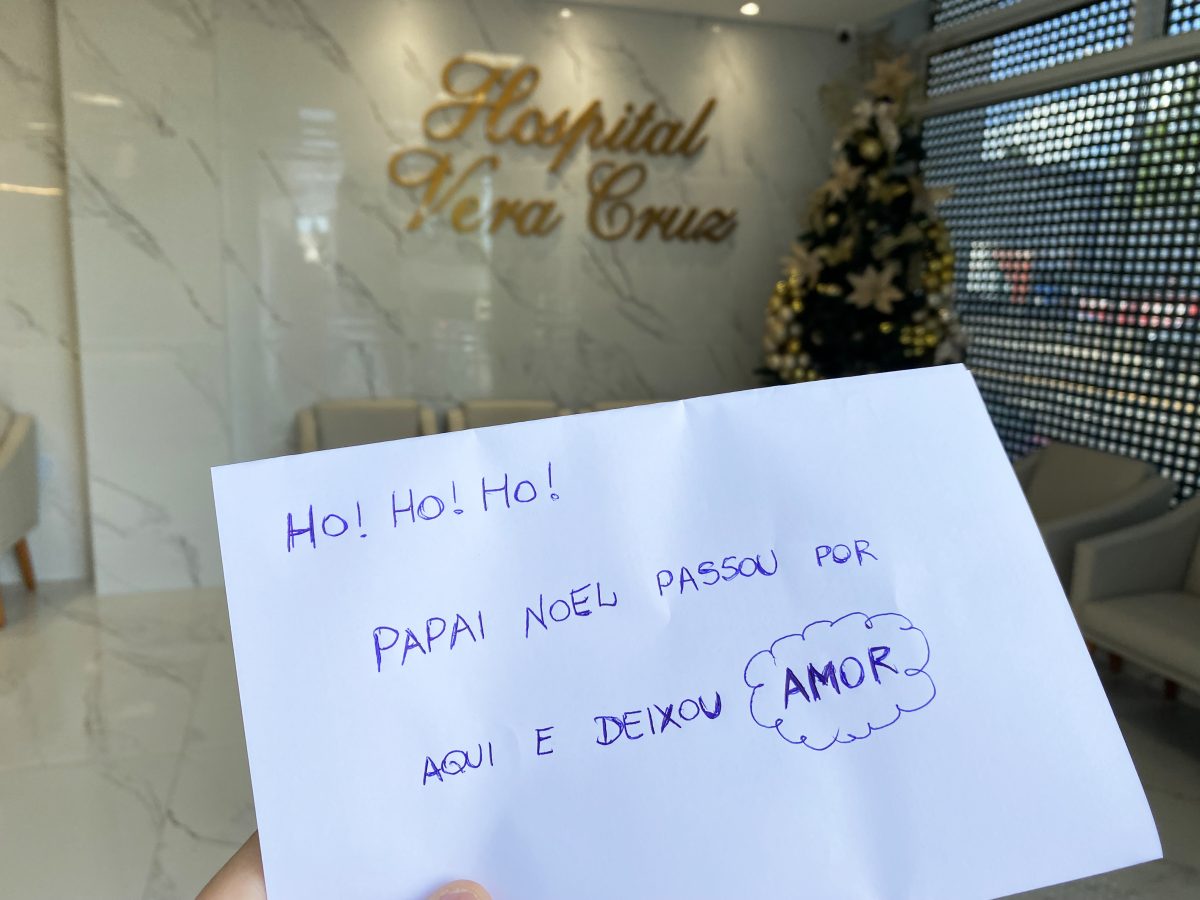 Hospital
Vera Cruz
HO! HO! HO!
PAPAI NOEL PASSOU POR
AQUI E DEIXOU AMOR